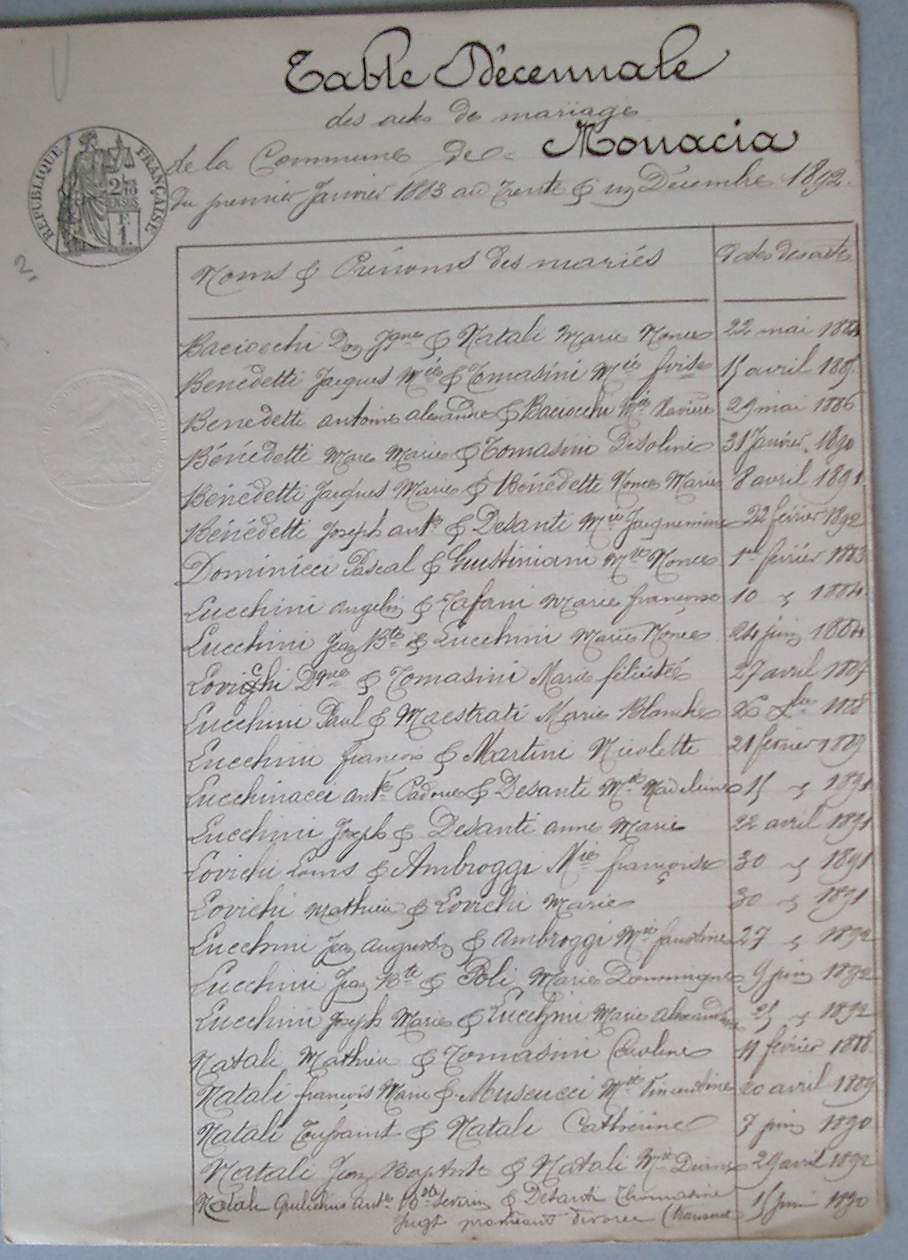 Table Décennale
des actes de mariage
de la Commune de Monacia
du premier Janvier 1883 au trente & un Décembre 1892.
RÉPUBLIQUE FRANÇAISE
2/10
EN SUS
1 F.
2
Noms & Prénoms des mariés
dates des actes
Baciocchi Don Jqne & Natali Marie Nonce 22 mai 1884
Benedetti Jacques Mie & Tomasini Mie 15 avril
Benedetti antoine alexandre & Baciocchi Xavière 29 mai 1886
Bénédetti Marc Marie & Tomasini Desoline 31 Janvier 1890
Bénédetti Jacques Marie & Bénédetti Nonce Marie 8 avril 1891
Bénédetti Joseph ante & Desanti Mie Jacquemine 22 février 1892
Dominicci Pascal & Giustiniani Nonce 1er février 1883
Lucchini angelin & Tafani Marie françoise 10 " 1884
Lucchini Jean Bte & Lucchini Marie Nonce 24 juin 1884
Lovicchi Dque & Tomasini Marie félicité 27 avril 1887
Lucchini Paul & Maestrati Marie Blanche 1888
Lucchini françois & Martini Nicolette 21 février 1889
Lucchinacci ante Padoue & Desanti Mie Madeleine 15 " 1891
Lucchini Joseph & Desanti anne Marie 22 avril 1891
Lovichi Louis & Ambroggi Mie françoise 30 " 1891
Lovichi Mathieu & Lovichi Marie 30 " 1891
Lucchini Jean augustin & Ambroggi Mie faustine 27 " 1892
Lucchini Jean Bte & Poli Marie Dominique 9 juin 1892
Lucchini Joseph Marie & Lucchini Marie alexandrine 25 " 1892
Natali Mathieu & Tomasini Caroline 11 février 1888
Natali françois Marie & Muscucci Mie Vincentine 20 avril 1889
Natali Toussaint & Natali Catherine 7 juin 1890
Natali Jean Baptiste & Natali Mie Divine 29 avril 1892
Natali ante Bte Séverin & Desanti Thomasine 15 juin 1890
jugt prononçant divorce